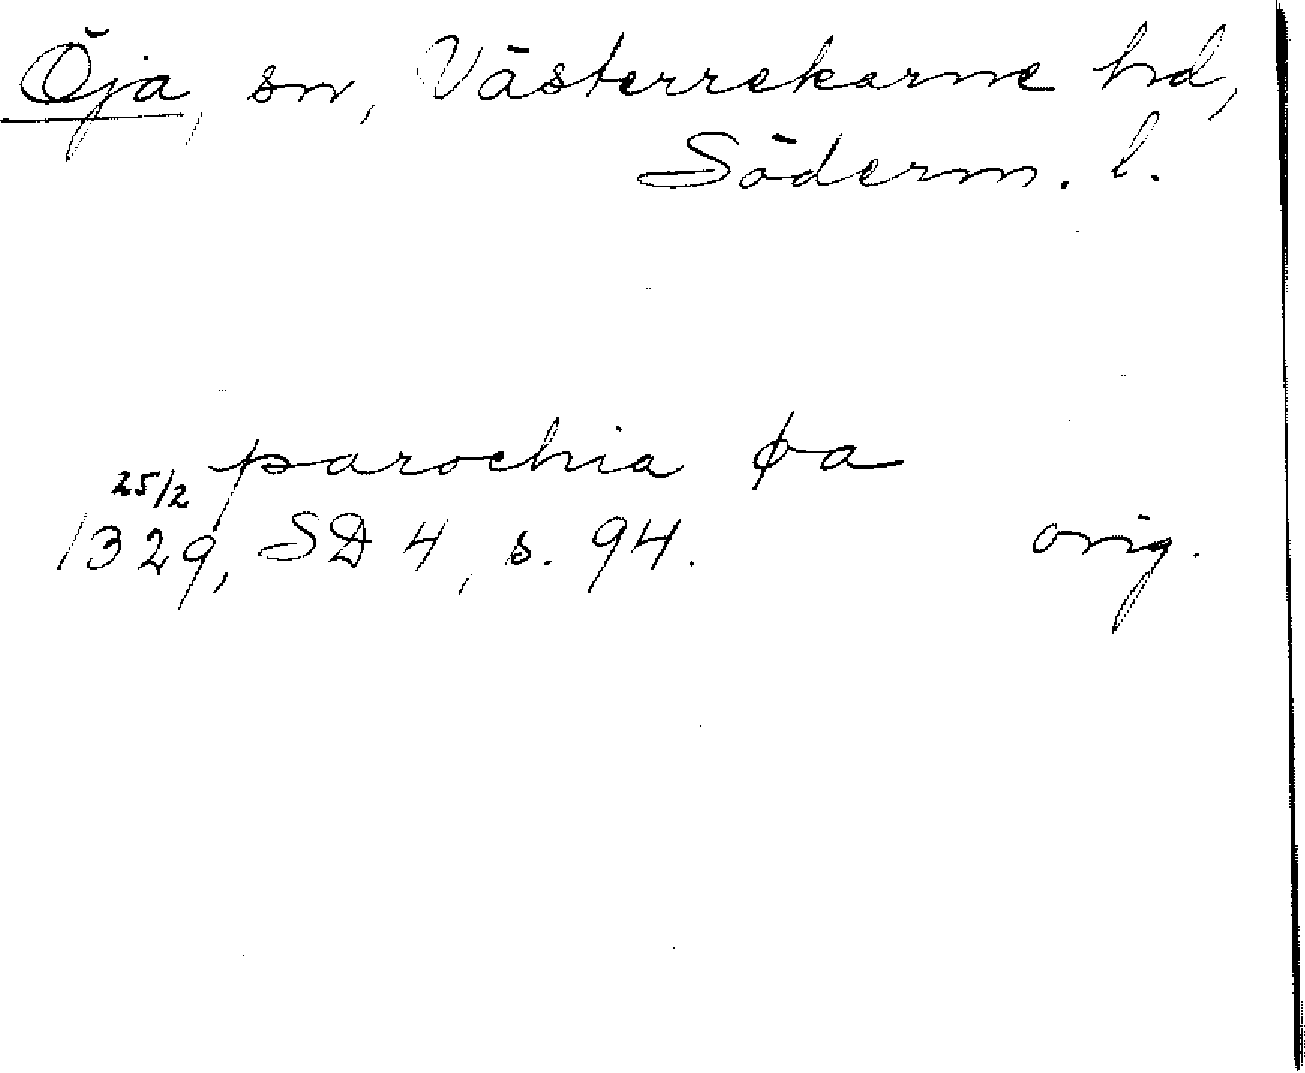 Öja, sn, Västerrekarne hd,
Söderm. l.
parochia øa
25/2
1329, SD 4, s. 94. orig.